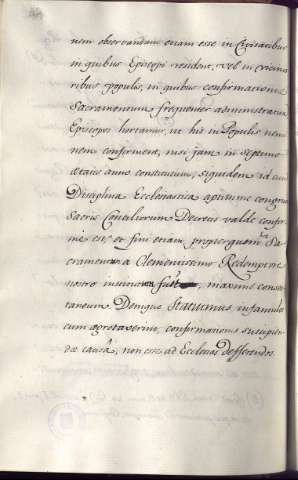 nem observandam etiam esse in Civitatibus
in quibus Episcopi resident, vel in vicinio
ribus populis, in quibus confirmationis
Sacramentum frequenter administratur
Episcopos hortamur, ut his in Populis nemi
nem confirment, nisi jam in septimo
ætatis anno constitutum, siquidem id cum
Disciplina Ecclesiastica aptissime congruit
Sacris Conciliorum Decretis valde confor
me est, et fini etiam, propter quem Sa
cramentum a Clementissimo Redemptore
nostro institutum fuit, maxime consen
taneum Denique Statuimus infantulos
cum ægrotaverint, confirmationis suscipien
dæ causâ, non esse ad Ecclesias defferendos.